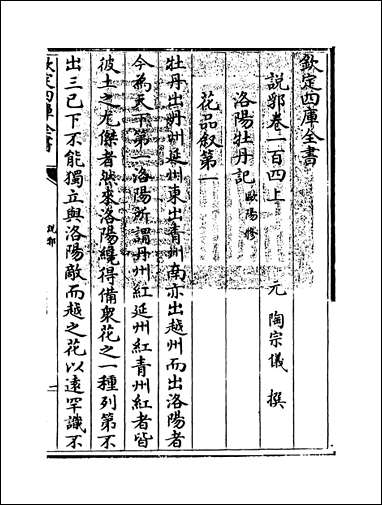 欽定四庫全書
說郛卷一百四上
元 陶宗儀 撰
洛陽牡丹記 歐陽修
花品叙第一
牡丹出丹州延州東出青州南亦出越州而出洛陽者
今為天下第一洛陽所謂丹州紅延州紅青州紅者皆
彼土之尤傑者然來洛陽纔得備衆花之一種列第不
出三已下不能獨立與洛陽敵而越之花以逺罕識不
欽定四庫全書
說郛